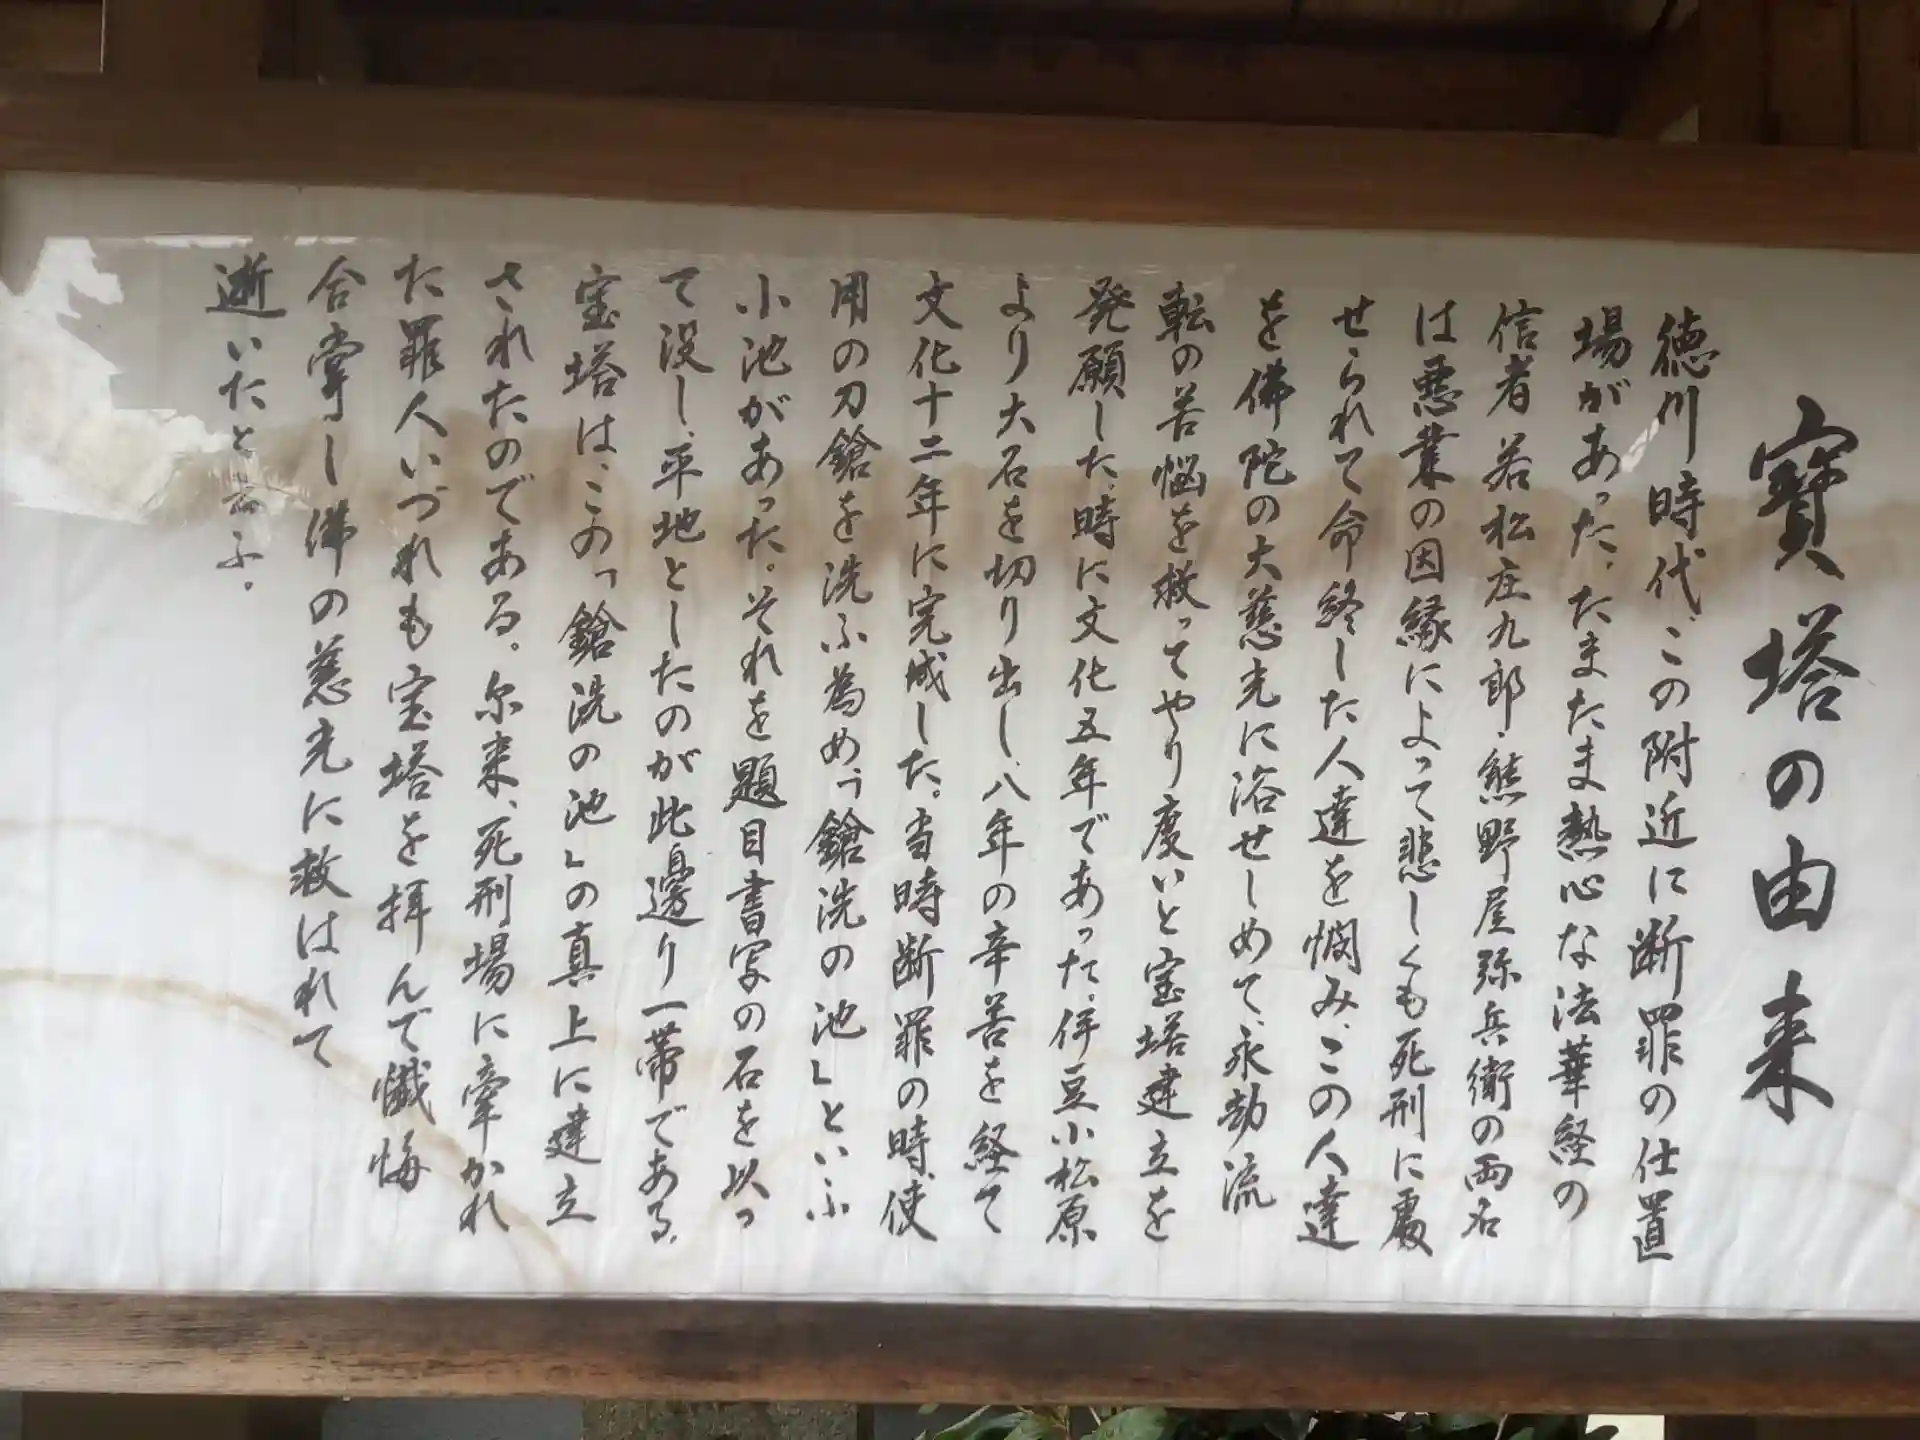 寳塔の由来
徳川時代、この附近に断罪の仕置
場があった。たまたま熱心な法華経の
信者若松庄九郎・熊野屋弥兵衛の両名
は悪業の因縁によって悲しくも死刑に處
せられて命終した人達を憫み、この人達
を佛陀の大慈光に浴せしめて、永劫流
転の苦悩を救ってやり度いと宝塔建立を
発願した、時に文化五年であった、伴豆小松原
より大石を切り出し、八年の辛苦を経て
文化十二年に完成した。当時断罪の時、使
用の刀鎗を洗ふ為め、「鎗洗の池」といふ
小池があった。それを題目書写の石を以っ
て没し、平地としたのが此邊り一帯である、
宝塔は、この「鎗洗の池」の真上に建立
されたのである。尓来、死刑場に牽かれ
た罪人いづれも宝塔を拝んで懺悔
合掌し佛の慈光に救はれて
逝いたと言ふ。